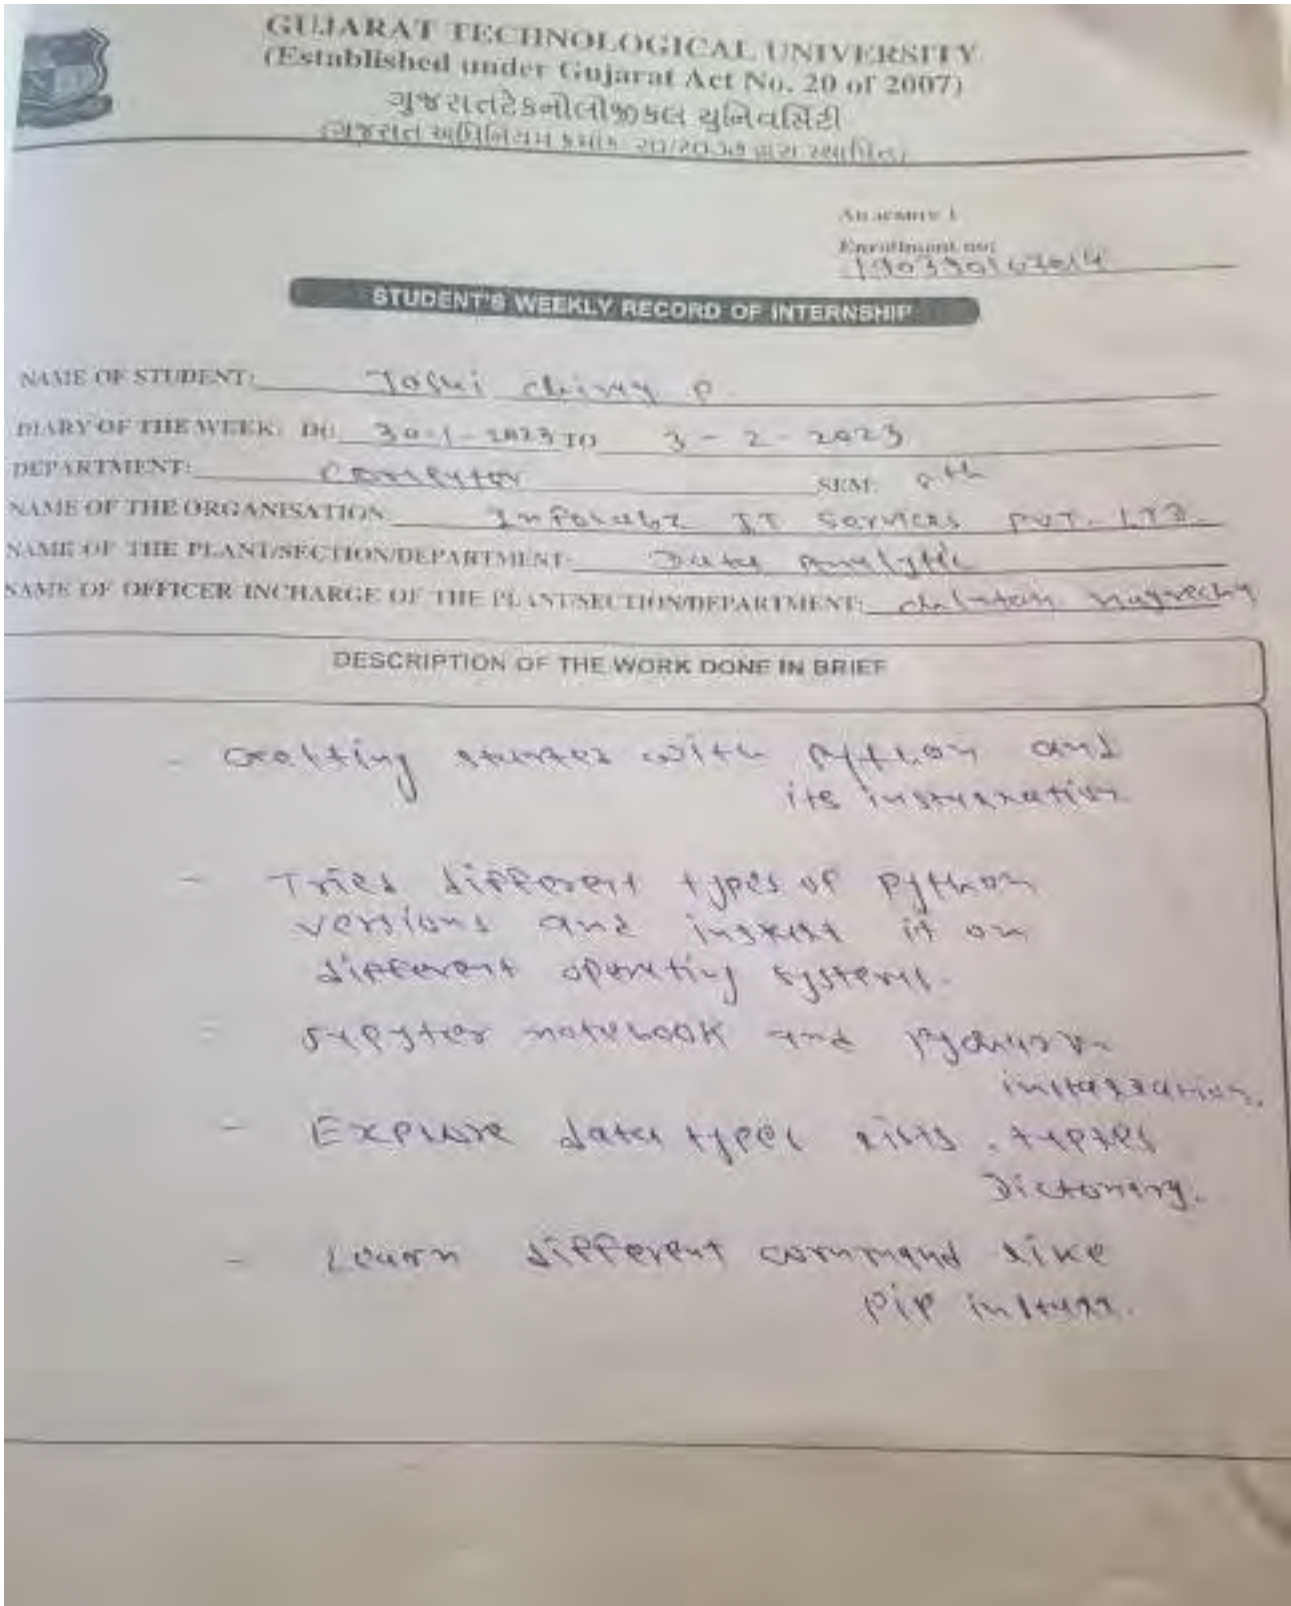 GUJARAT TECHNOLOGICAL UNIVERSITY
(Established under Gujarat Act No. 20 of 2007)
ગુજરાતટેકનોલોજીકલ યુનિવર્સિટી
(ગુજરાત અધિનિયમ ક્રમાંક: ૨૦/૨૦૦૭ દ્વારા સ્થાપિત)
Annexure 1
Enrollment no:
STUDENT'S WEEKLY RECORD OF INTERNSHIP
NAME OF STUDENT: Joshi P.
DIARY OF THE WEEK: 30-1-2023 TO 3-2-2023
DEPARTMENT: Computer SEM: 8th
NAME OF THE ORGANISATION IT Services PVT. LTD.
NAME OF THE PLANT/SECTION/DEPARTMENT: Data Analytic
NAME OF OFFICER INCHARGE OF THE PLANT/SECTION/DEPARTMENT:
DESCRIPTION OF THE WORK DONE IN BRIEF
- Getting started with Python and
its
- Tried different types of Python
versions and install it on
different operating systems.
- Jupyter notebook and Pycharm
installation.
- Explore data types lists, tuples
Dictonary.
- Learn different command like
pip install.